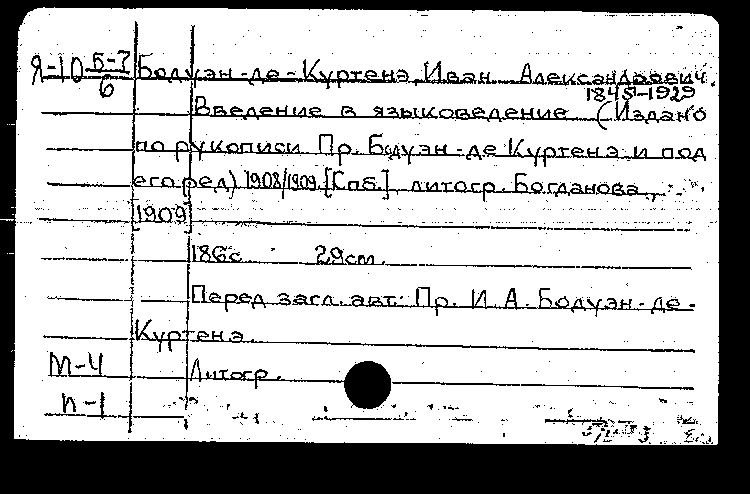 Я-10 Б-7 Бодуэн-де-Куртенэ, Иван Александрович.
6 1845-1929
Введение в языковедение (Издано
по рукописи Пр. Бдуэн-де Куртенэ и под
его ред) 1908/1909. [Спб.], литогр. Богданова,
[1909]
186с 29см.
Перед загл. авт: Пр. И. А. Бодуэн-де-
Куртенэ.
М-4 Литогр.
п-1